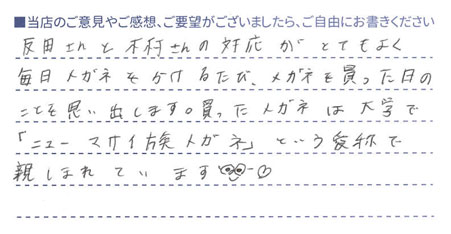 ■当店のご意見やご感想、ご要望がございましたら、ご自由にお書きください
反田さんと木村さんの対応がとてもよく
毎日メガネをかけるたび、メガネを買った日の
ことを思い出します。買ったメガネは大学で
「ニューマサイ族メガネ」という愛称で
親しまれています